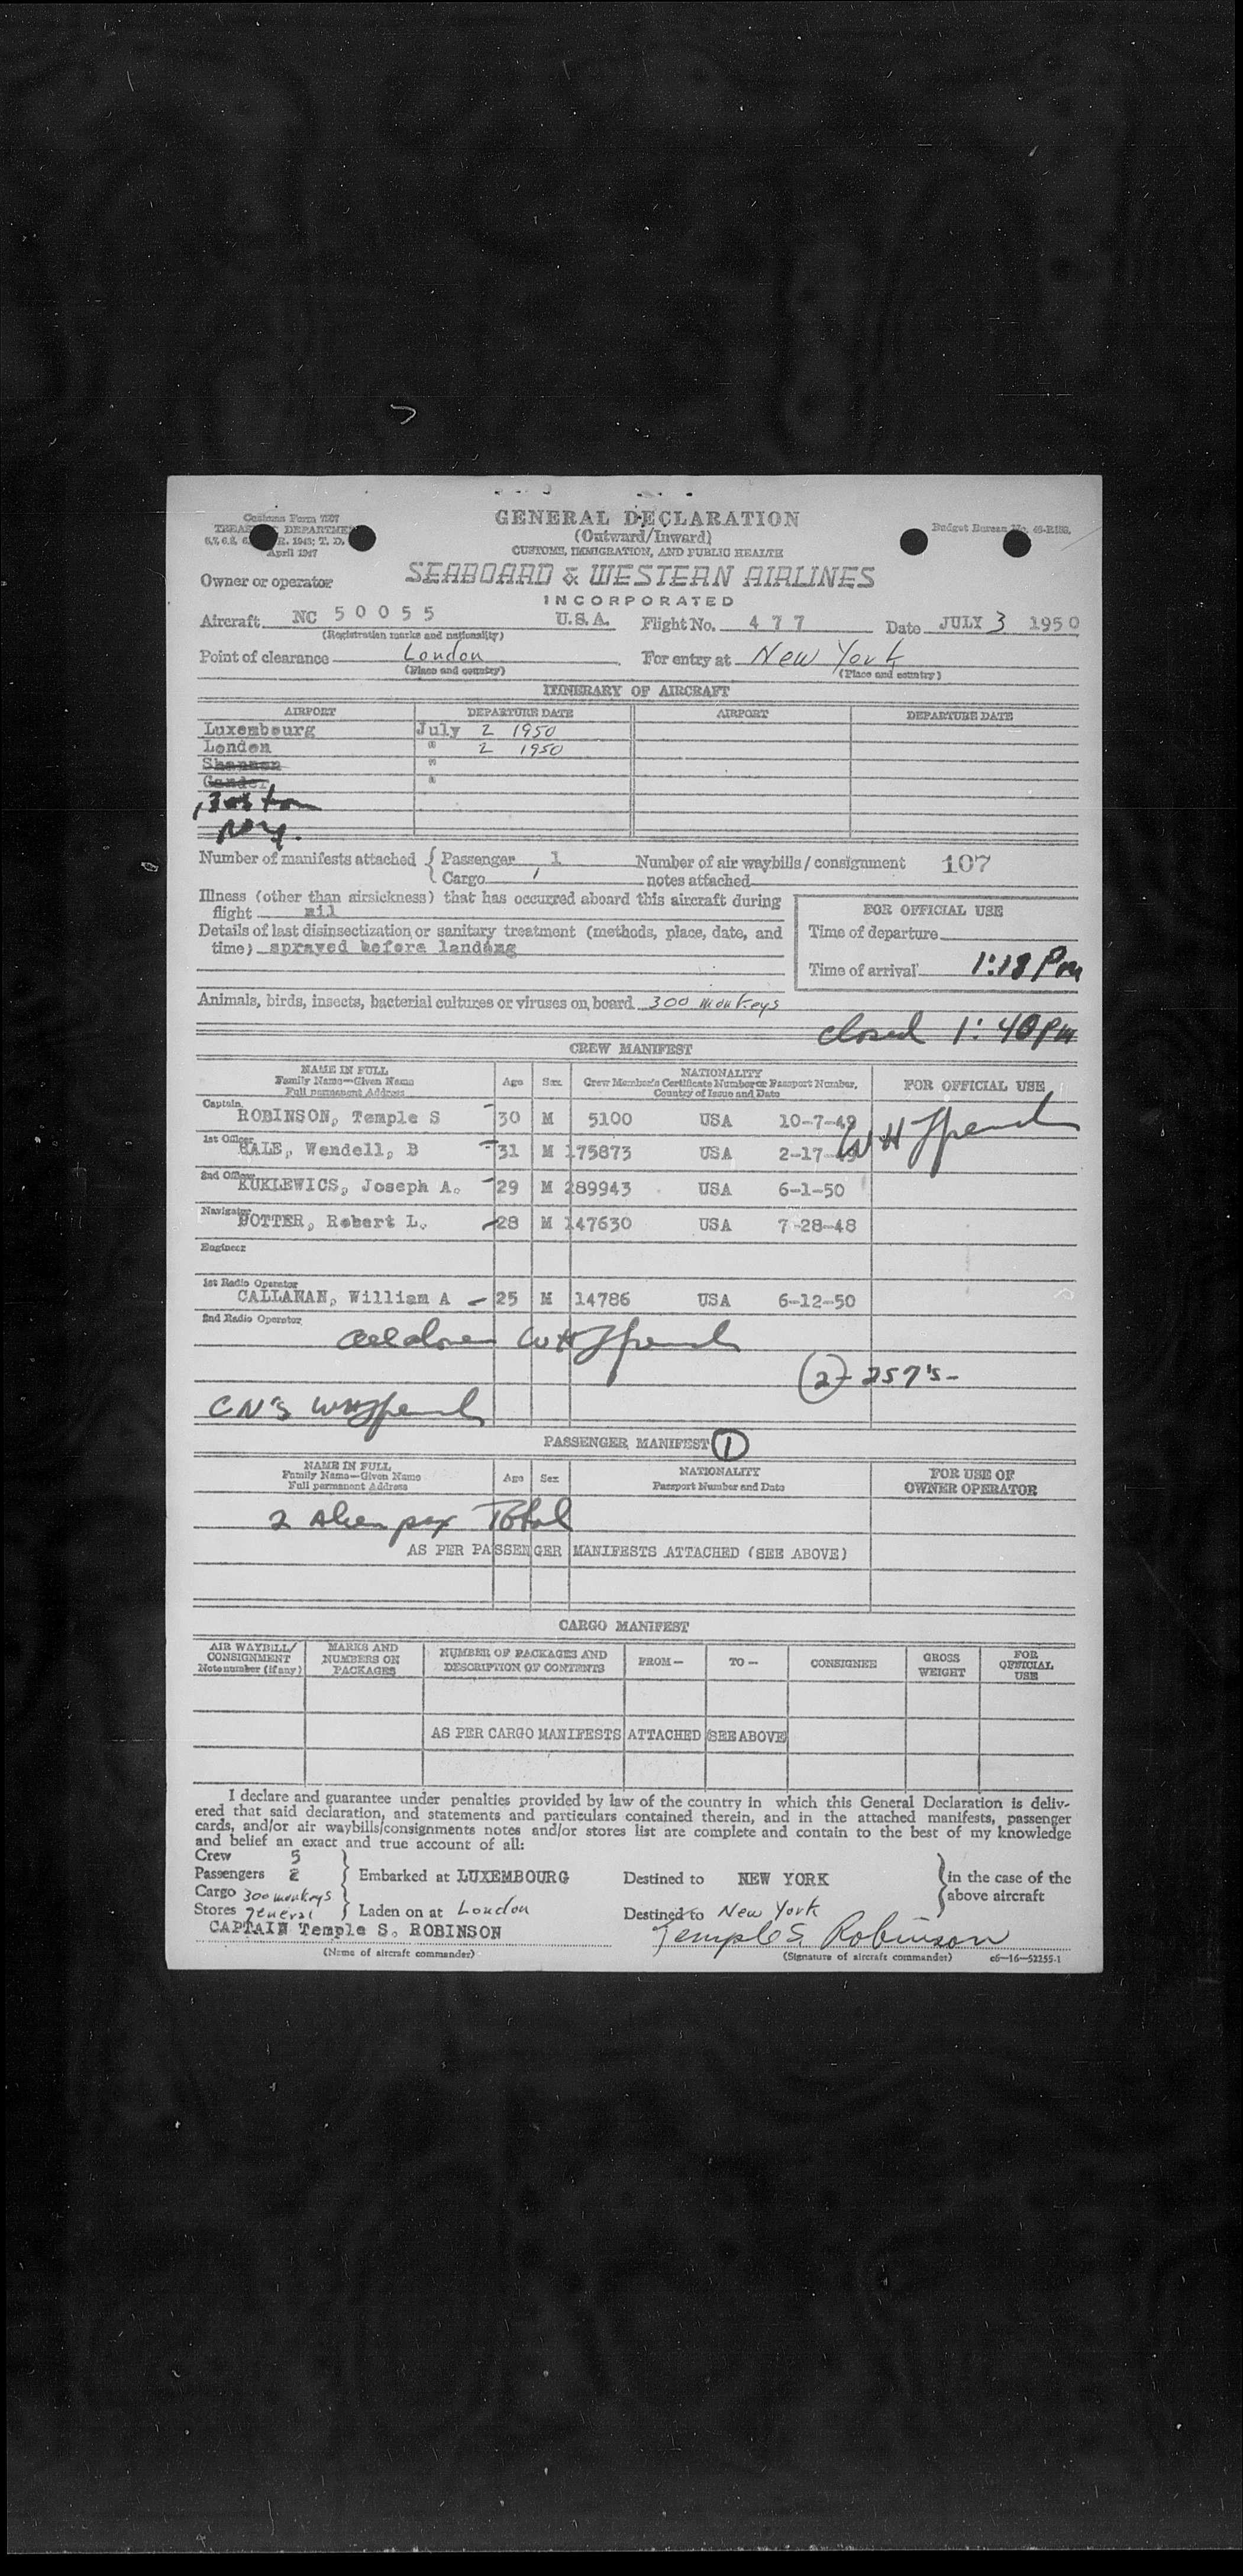 Customs Form 7507
TREASURY DEPARTMENT
April 1947
GENERAL DECLARATION
(Outward/Inward)
CUSTOMS, IMMIGRATION, AND PUBLIC HEALTH
Budget Bureau No.
SEABOARD & WESTERN AIRLINES
Owner or operator
INCORPORATED
Aircraft NC 50055 U.S.A. Flight No. 477 Date JULY 3 1950
(Registration marks and nationality)
Point of clearance London For entry at New York
(Place and country) (Place and country)
ITINERARY OF AIRCRAFT
AIRPORT DEPARTURE DATE AIRPORT DEPARTURE DATE
Luxembourg July 2 1950
London " 2 1950
Shannon "
Gander "
Boston
Number of manifests attached { Passenger 1 Number of air waybills / consignment 107
{ Cargo 1 notes attached
Illness (other than airsickness) that has occurred aboard this aircraft during
flight nil
FOR OFFICIAL USE
Details of last disinsectization or sanitary treatment (methods, place, date, and
time) sprayed before landing
Time of departure
Time of arrival 1:18 Pm
Animals, birds, insects, bacterial cultures or viruses on board 300 monkeys
closed 1:40 pm
CREW MANIFEST
NAME IN FULL
Family Name—Given Name
Full permanent Address
Age Sex
NATIONALITY
Crew Member's Certificate Number or Passport Number,
Country of Issue and Date
FOR OFFICIAL USE
Captain
ROBINSON, Temple S 30 M 5100 USA 10-7-49
1st Officer
HALE, Wendell, B 31 M 175873 USA 2-17-49
2nd Officer
KUKLEWICS, Joseph A. 29 M 289943 USA 6-1-50
Navigator
POTTER, Robert L. 28 M 147630 USA 7-28-48
Engineer
1st Radio Operator
CALLAHAN, William A 25 M 14786 USA 6-12-50
2nd Radio Operator
(2) - 257's -
PASSENGER MANIFEST 1
NAME IN FULL
Family Name—Given Name
Full permanent Address
Age Sex
NATIONALITY
Passport Number and Date
FOR USE OF
OWNER OPERATOR
2 Alien pax Total
AS PER PASSENGER MANIFESTS ATTACHED (SEE ABOVE)
CARGO MANIFEST
AIR WAYBILL/
CONSIGNMENT
Note number (if any)
MARKS AND
NUMBERS ON
PACKAGES
NUMBER OF PACKAGES AND
DESCRIPTION OF CONTENTS
FROM— TO— CONSIGNEE
GROSS
WEIGHT
FOR
OFFICIAL
USE
AS PER CARGO MANIFESTS ATTACHED (SEE ABOVE)
I declare and guarantee under penalties provided by law of the country in which this General Declaration is deliv-
ered that said declaration, and statements and particulars contained therein, and in the attached manifests, passenger
cards, and/or air waybills/consignments notes and/or stores list are complete and contain to the best of my knowledge
and belief an exact and true account of all:
Crew 5
Passengers 2 Embarked at LUXEMBOURG Destined to NEW YORK in the case of the
Cargo 300 monkeys above aircraft
Stores general Laden on at London Destined to New York
CAPTAIN Temple S. ROBINSON Temple S. Robinson
(Name of aircraft commander) (Signature of aircraft commander) c6—16—52255-1